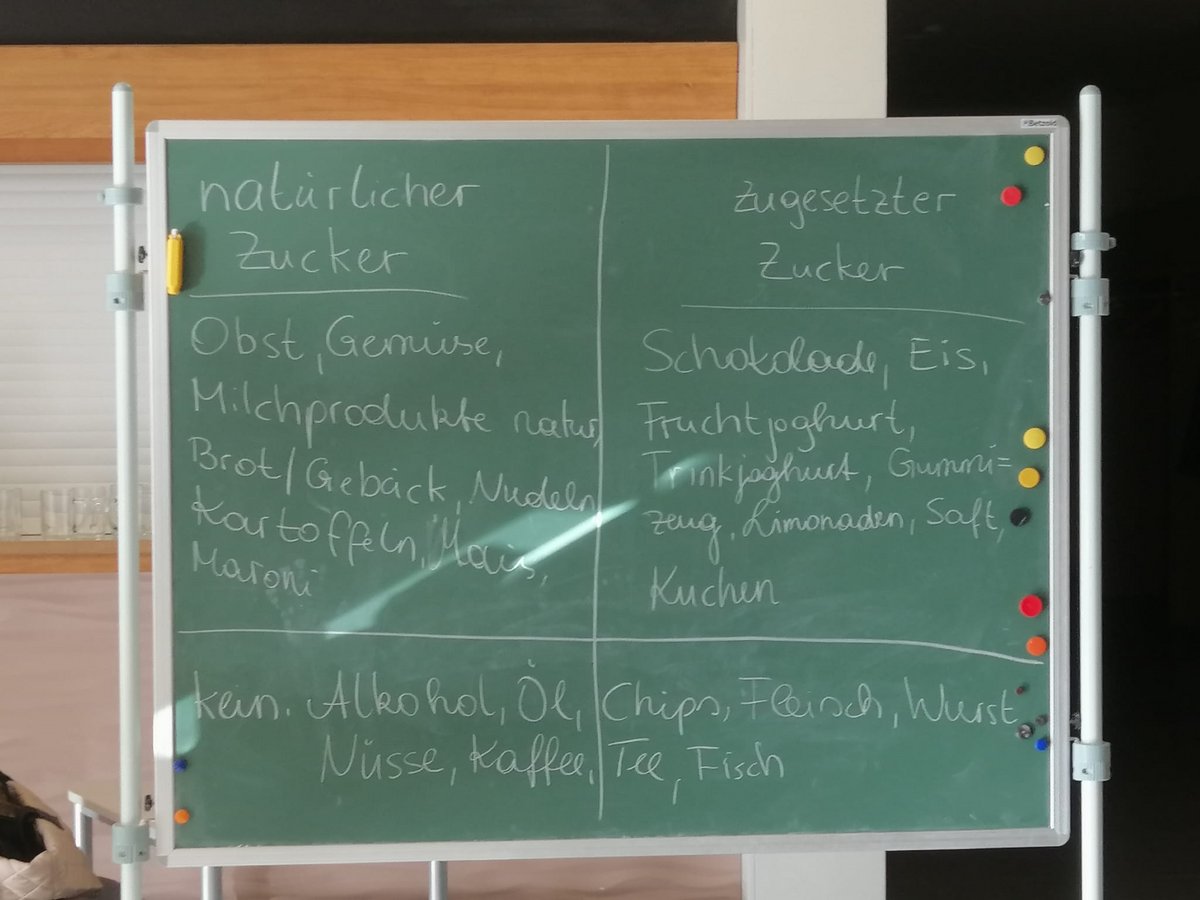 Betzold
natürlicher
Zucker
Obst, Gemüse,
Milchprodukte natur,
Brot/Gebäck, Nudeln
Kartoffeln, Mais,
Maroni
zugesetzter
Zucker
Schokolade, Eis,
Fruchtjoghurt,
Trinkjoghurt, Gummi=
zeug, Limonaden, Saft,
Kuchen
kein. Alkohol, Öl, Chips, Fleisch, Wurst
Nüsse, Kaffee, Tee, Fisch